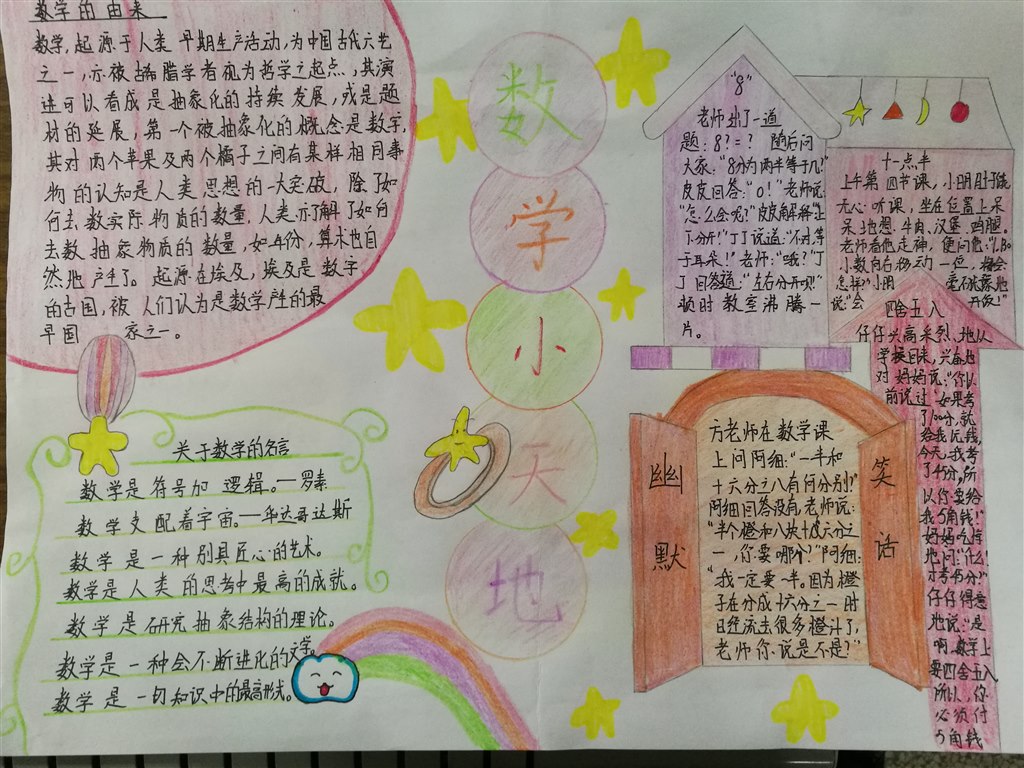 数学的由来
数学,起源于人类早期生产活动,为中国古代六艺
之一,亦被古希腊学者视为哲学之起点,其演
进可以看成是抽象化的持续发展,或是题
材的延展,第一个被抽象化的概念是数字,
其对两个苹果及两个橘子之间有某样相同事
物的认知是人类思想的一大突破,除了如
何去数实际物质的数量,人类亦了解了如何
去数抽象物质的数量,如年份,算术也自
然地产生了。起源在埃及,埃及是数字
的古国,被人们认为是数学产生的最
早国家之一。
关于数学的名言
数学是符号加逻辑。—罗素
数学支配着宇宙。—毕达哥达斯
数学是一种别具匠心的艺术。
数学是人类的思考中最高的成就。
数学是研究抽象结构的理论。
数学是一种会不断进化的文学。
数学是一切知识中的最高形式。
数
学
小
天
地
“8”
老师出了一道
题:8?=? 随后问
大家:“8分为两半等于几?”
皮皮回答:“0!”老师说:
“怎么会呢?”皮皮解释“上
下分开!”丁丁说道:“不对,等
于耳朵!”老师:“哦?”丁
丁回答道:“左右分开呗!”
顿时教室沸腾一
片。
十一点半
上午第四节课,小明肚子饿
无心听课,坐在位置上呆
呆地想:牛肉、汉堡、鸡腿。
老师看他走神,便问他:“1.130
小数向右移动一位,将会
怎样?”小明
说:“会
开饭!”
四舍五入
仔仔兴高采烈地从
学校回来,兴奋地
对妈妈说:“你以
前说过,如果考
了100分,就
给我1元钱,
今天,我考
了45分,所
以你要给
我5角钱!”
妈妈吃惊
地问:“什么!
才考45分?”
仔仔得意
地说:“是
啊,数学上
要四舍五入
所以,你
必须付
5角钱
幽默
笑话
方老师在数学课
上问阿细:“一半和
十六分之八有何分别?”
阿细回答没有,老师说:
“半个橙和八块十六分之
一,你要哪个?”阿细:
“我一定要一半。因为橙
子在分成十六分之一时
已经流去很多橙汁了,
老师你说是不是?”